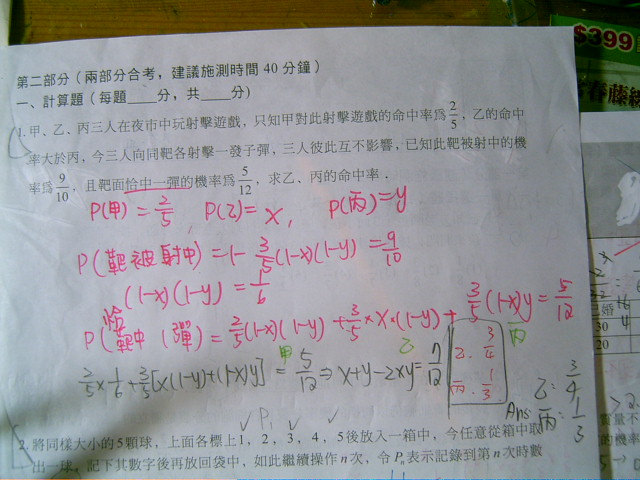 第二部分（兩部分合考，建議施測時間 40 分鐘）
一、計算題（每題____分，共____分）
1.甲、乙、丙三人在夜市中玩射擊遊戲，只知甲對此射擊遊戲的命中率爲2/5，乙的命中
率大於丙，今三人向同靶各射擊一發子彈，三人彼此互不影響，已知此靶被射中的機
率爲9/10，且靶面恰中一彈的機率爲5/12，求乙、丙的命中率．
P(甲)=2/5, P(乙)=x, P(丙)=y
P(靶被射中)=1-3/5(1-x)(1-y)=9/10
(1-x)(1-y)=1/6
P(靶恰中1彈)=2/5(1-x)(1-y)+3/5×x×(1-y)+3/5(1-x)y=5/12
甲 乙 丙
2/5×1/6+3/5[x(1-y)+(1-x)y]=5/12⇒x+y-2xy=7/12
乙：3/4
丙：1/3
Ans: 乙：3/4
丙：1/3
P₁
2.將同樣大小的5顆球，上面各標上1，2，3，4，5後放入一箱中，今任意從箱中取
出一球，記下其數字後再放回袋中，如此繼續操作n次，令Pn表示記錄到第n次時數
$399
春藤
已婚
30
4
20